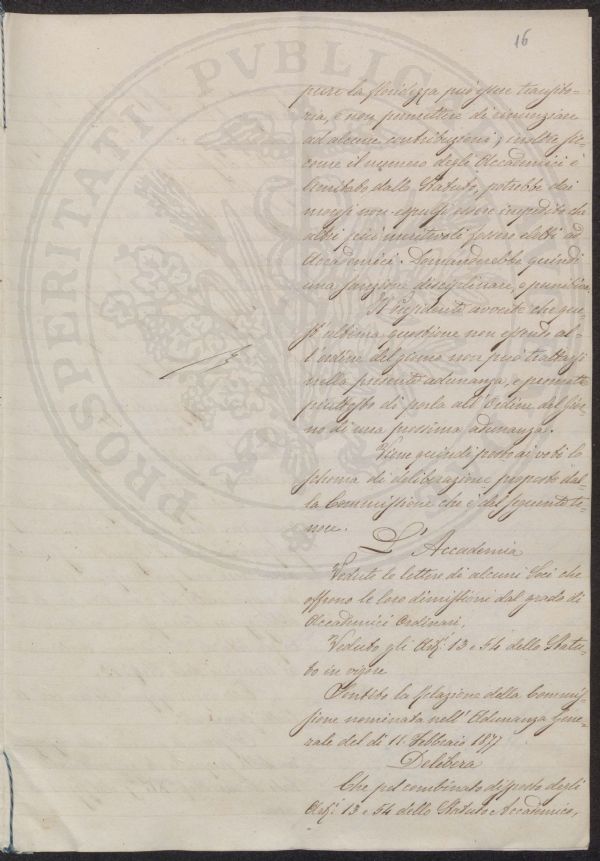 16
pure la floridezza può essere transito-
ria, e non permettere di rinunziare
ad alcune contribuzioni; inoltre sic-
come il numero degli Accademici è
limitato dallo Statuto, potrebbe dai
morosi non espulsi essere impedito che
altri più meritevoli fossero eletti ad
Accademici. Domanderebbe quindi
una sanzione disciplinare, e punitiva.
Il Presidente avverte che que-
st'ultima questione non essendo al-
l'ordine del giorno non può trattarsi
nella presente adunanza, e permette
piuttosto di porla all'Ordine del Gior-
no di una prossima adunanza.
Viene quindi posto ai voti lo
schema di deliberazione proposto dal-
la Commissione che è del seguente te-
nore.
L'Accademia
Vedute le lettere di alcuni Soci che
offrono le loro dimissioni dal grado di
Accademici Ordinari,
Veduto gli Art.i 13 e 54 dello Statu-
to in vigore
Sentito la Relazione della Commis-
sione nominata nell'Adunanza Gene-
rale del dì 11 Febbraio 1877
Delibera
Che pel combinato disposto degli
Art.i 13 e 54 dello Statuto Accademico,
PROSPERITATI PVBLICAE